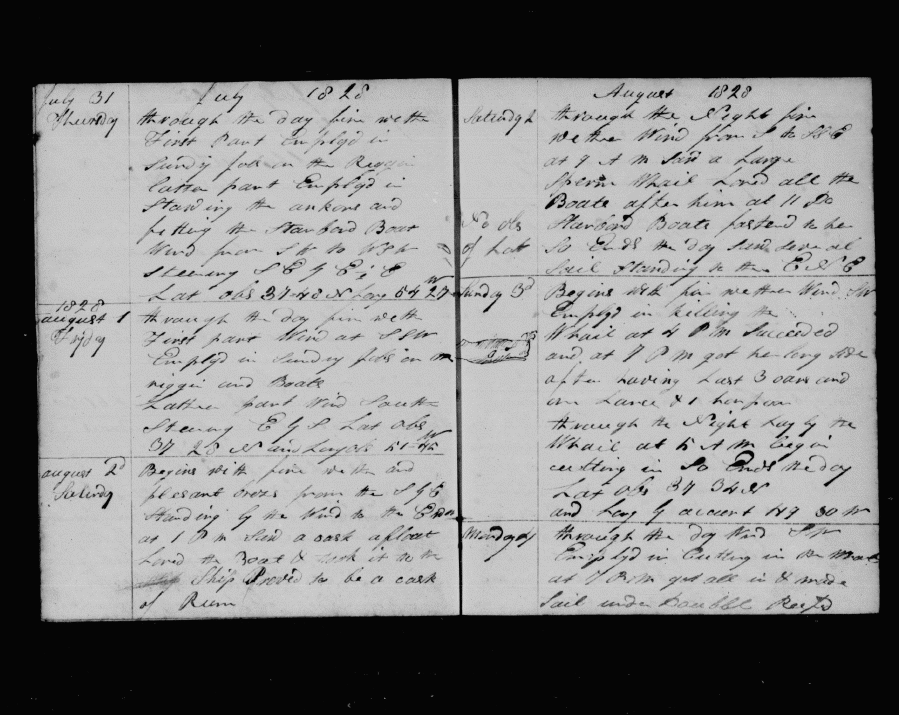 July 1828
July 31
Thursday
through the day fine wethr
First Part Emplyd in
Sundy jobs on the Riggin
Latter part Emplyd in
Stowing the ankors and
fitting the Starbord Boat
Wind from SW to WSW
Steering S E &
Lat obs 37-48 N Long 54 27 W
1828
august 1
Fryday
through the day fine weth
First part Wind at SSW
Emplyd in Sundry jobs on the
riggin and Boats
Latter part Wind South
Steering E
37 28 N and Long 51-45 W
august 2d
Saturdy
Begins with fine wethr and
plesant brezes from the
Standing by the Wind to the
at 1 P m Saw a cask afloat
Lored the Boat & took it to the
Ship Proved to be a cask
of Rum
August 1828
Saturdy 2
through the Night fine
wether Wind from S to SSE
at 9 A m Saw a Large
Sperm Whail Lored all the
Boats after him at 11 Do
Starbord Boats fastend to her
So Ends the day Send several
Sail Standing to the E N E
No obs
of Latt
Sunday 3d
Begins with fine wether Wind SW
Emplyd in killing the
Whail at 4 P m Succeeded
and at 7 P m got her long side
after having Lost 3 oars and
on Lance & 1 harpoon
through the Night Lay by the
Whail at 5 A m begin
cutting in So Ends the day
Lat obs 37 34 N
and Long by account 49 30 W
Monday 4
through the day Wind SW
Emplyd in Cutting in the
at 7 P m got all in & made
Sail under Doubble Reefs